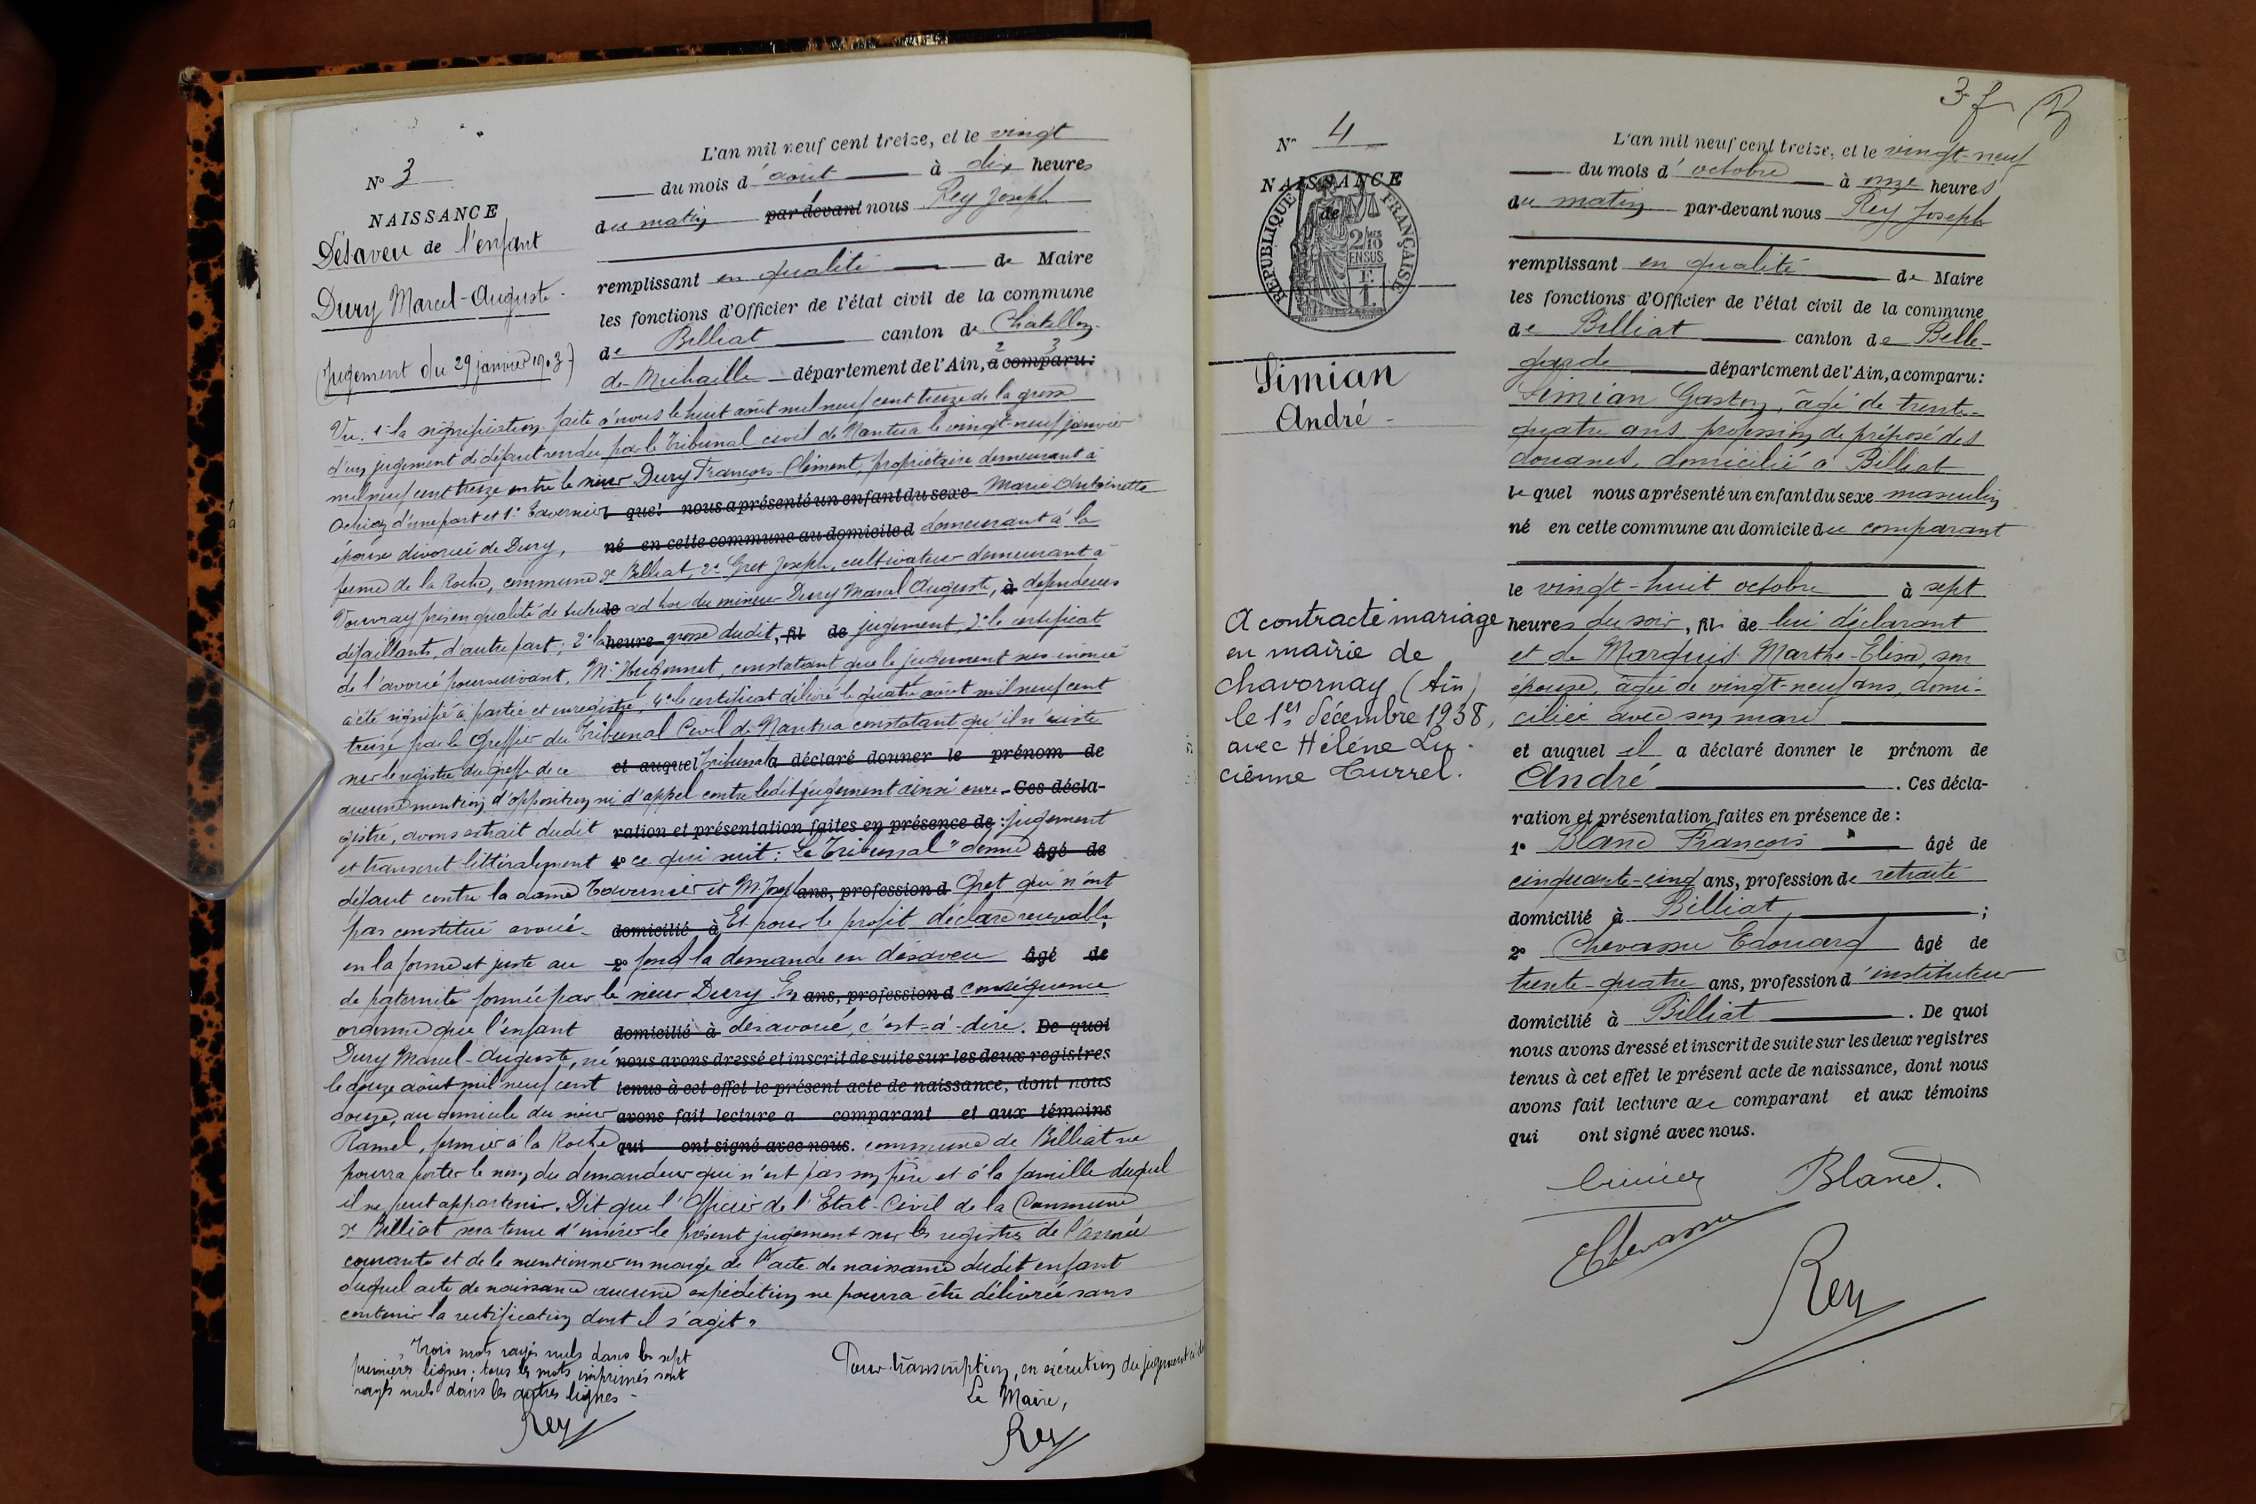 L'an mil neuf cent treize, et le vingt
du mois d'août à dix heures
du matin par-devant nous Rey Joseph
remplissant en qualité de Maire
les fonctions d'Officier de l'état civil de la commune
de Billiat canton de Chatillon
de Michaille département de l'Ain, a comparu :
N° 3
NAISSANCE
Désaveu de l'enfant
Dury Marcel-Auguste
(Jugement du 29 janvier 1903)
Vu : 1° la signification faite à nous le huit août mil neuf cent treize de la grosse
d'un jugement de défaut rendu par le Tribunal civil de Nantua le vingt-neuf janvier
mil neuf cent treize entre le sieur Dury François-Clément, propriétaire demeurant à
Ochiaz d'une part et 1° Tavernier que! nous a présenté un enfant du sexe Marie Antoinette
épouse divorcée de Dury, né en cette commune au domicile d demeurant à la
ferme de la Roche, commune de Billiat, 2° Gret Joseph, cultivateur demeurant à
Vouvray pris en qualité de tuteur ad hoc du mineur Dury Marcel Auguste, à défendeurs
défaillants, d'autre part ; 2° la heure grosse dudit, fil de jugement, 3° le certificat
de l'avoué poursuivant, Me Hugonnet, constatant que le jugement sus-énoncé
a été signifié à partie et enregistré, 4° le certificat délivré le quatre août mil neuf cent
treize par le Greffier du Tribunal Civil de Nantua constatant qu'il n'existe
sur le registre du greffe de ce et auquel Tribunal a déclaré donner le prénom de
aucune mention d'opposition ni d'appel contre ledit jugement ainsi enre- Ces décla-
gistré, avons extrait dudit ration et présentation faites en présence de : jugement
et transcrit littéralement 1° ce qui suit : Le Tribunal " donne âgé de
défaut contre la dame Tavernier et M. Joseph ans, profession d Gret qui n'ont
pas constitué avoué. domicilié à Et pour le profit déclare recevable,
en la forme et juste au 2° fond la demande en désaveu âgé de
de paternité formée par le sieur Dury En ans, profession d conséquence
ordonne que l'enfant domicilié à désavoué, c'est-à-dire. De quoi
Dury Marcel-Auguste, né nous avons dressé et inscrit de suite sur les deux registres
le douze août mil neuf cent tenus à cet effet le présent acte de naissance, dont nous
douze, au domicile du sieur avons fait lecture a comparant et aux témoins
Ramel, fermier à la Roche qui ont signé avec nous. commune de Billiat ne
pourra porter le nom du demandeur qui n'est pas son père et à la famille duquel
il ne peut appartenir. Dit que l'Officier de l'Etat-Civil de la Commune
de Billiat sera tenu d'insérer le présent jugement sur les registres de l'année
courante et de le mentionner en marge de l'acte de naissance dudit enfant
duquel acte de naissance aucune expédition ne pourra être délivrée sans
contenir la rectification dont il s'agit "
Trois mots rayés nuls dans les sept
premières lignes ; tous les mots imprimés sont
rayés nuls dans les autres lignes -
Rey
Pour transcription, en exécution du jugement
Le Maire,
Rey
3 f
N° 4
NAISSANCE
de
RÉPUBLIQUE FRANÇAISE
2/10
EN SUS
Simian
André -
A contracté mariage
en mairie de
Chavornay (Ain)
le 1er décembre 1938,
avec Hélène Lu-
cienne Turrel.
L'an mil neuf cent treize, et le vingt-neuf
du mois d'octobre à onze heures
du matin par-devant nous Rey Joseph
remplissant en qualité de Maire
les fonctions d'Officier de l'état civil de la commune
de Billiat canton de Belle-
garde département de l'Ain, a comparu :
Simian Gaston, âgé de trente-
quatre ans profession de préposé des
douanes, domicilié à Billiat
lequel nous a présenté un enfant du sexe masculin
né en cette commune au domicile du comparant
le vingt-huit octobre à sept
heures du soir, fils de lui déclarant
et de Marquis Marthe-Elisa, son
épouse, âgée de vingt-neuf ans, domi-
ciliée avec son mari
et auquel il a déclaré donner le prénom de
André . Ces décla-
ration et présentation faites en présence de :
1° Blanc François âgé de
cinquante-cinq ans, profession de retraité
domicilié à Billiat, ;
2° Chevassu Edouard âgé de
trente-quatre ans, profession d'instituteur
domicilié à Billiat . De quoi
nous avons dressé et inscrit de suite sur les deux registres
tenus à cet effet le présent acte de naissance, dont nous
avons fait lecture au comparant et aux témoins
qui ont signé avec nous.
Simian Blanc.
Chevassu
Rey